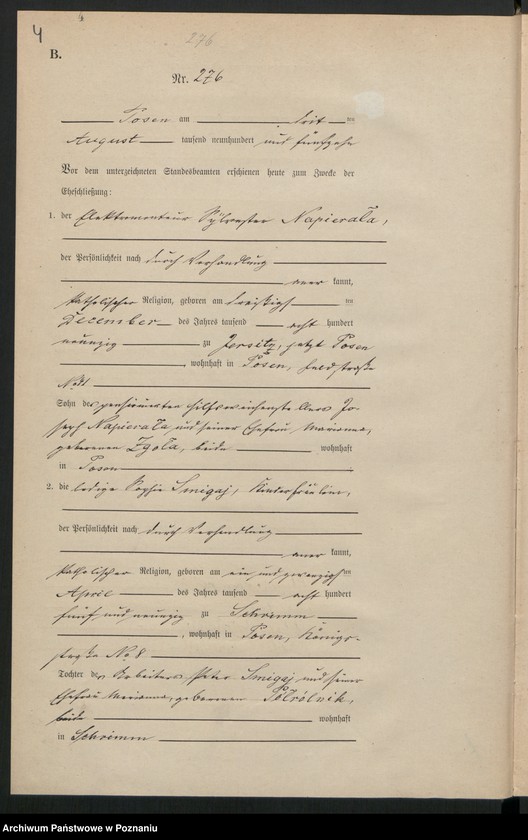 4
276
B.
Nr. 276
Posen am drit ten
August tausend neunhundert und fünfzehn
Vor dem unterzeichneten Standesbeamten erschienen heute zum Zwecke der
Eheschließung:
1. der Elektromonteur Sylvester Napierała,
der Persönlichkeit nach durch Verhandlung
aner kannt,
katholischer Religion, geboren am dreißigs ten
Dezember des Jahres tausend acht hundert
neunzig zu Jersitz, jetzt Posen
, wohnhaft in Posen, Feldstraße
No 21
Sohn des pensionierten Hilfsweichenstellers Jo-
seph Napierała und seiner Ehefrau Marianna,
geborenen Zgoła, beide wohnhaft
in Posen
2. die ledige Sophie Smigaj, Kinderfräulein,
der Persönlichkeit nach durch Verhandlung
aner kannt,
katholischer Religion, geboren am ein und zwanzigs ten
April des Jahres tausend acht hundert
fünf und neunzig zu Schrimm
, wohnhaft in Posen, Königs-
straße No 8
Tochter des Arbeiters Peter Smigaj und seiner
Ehefrau Marianna, geborenen Półrolnik,
beide wohnhaft
in Schrimm
Archiwum Państwowe w Poznaniu